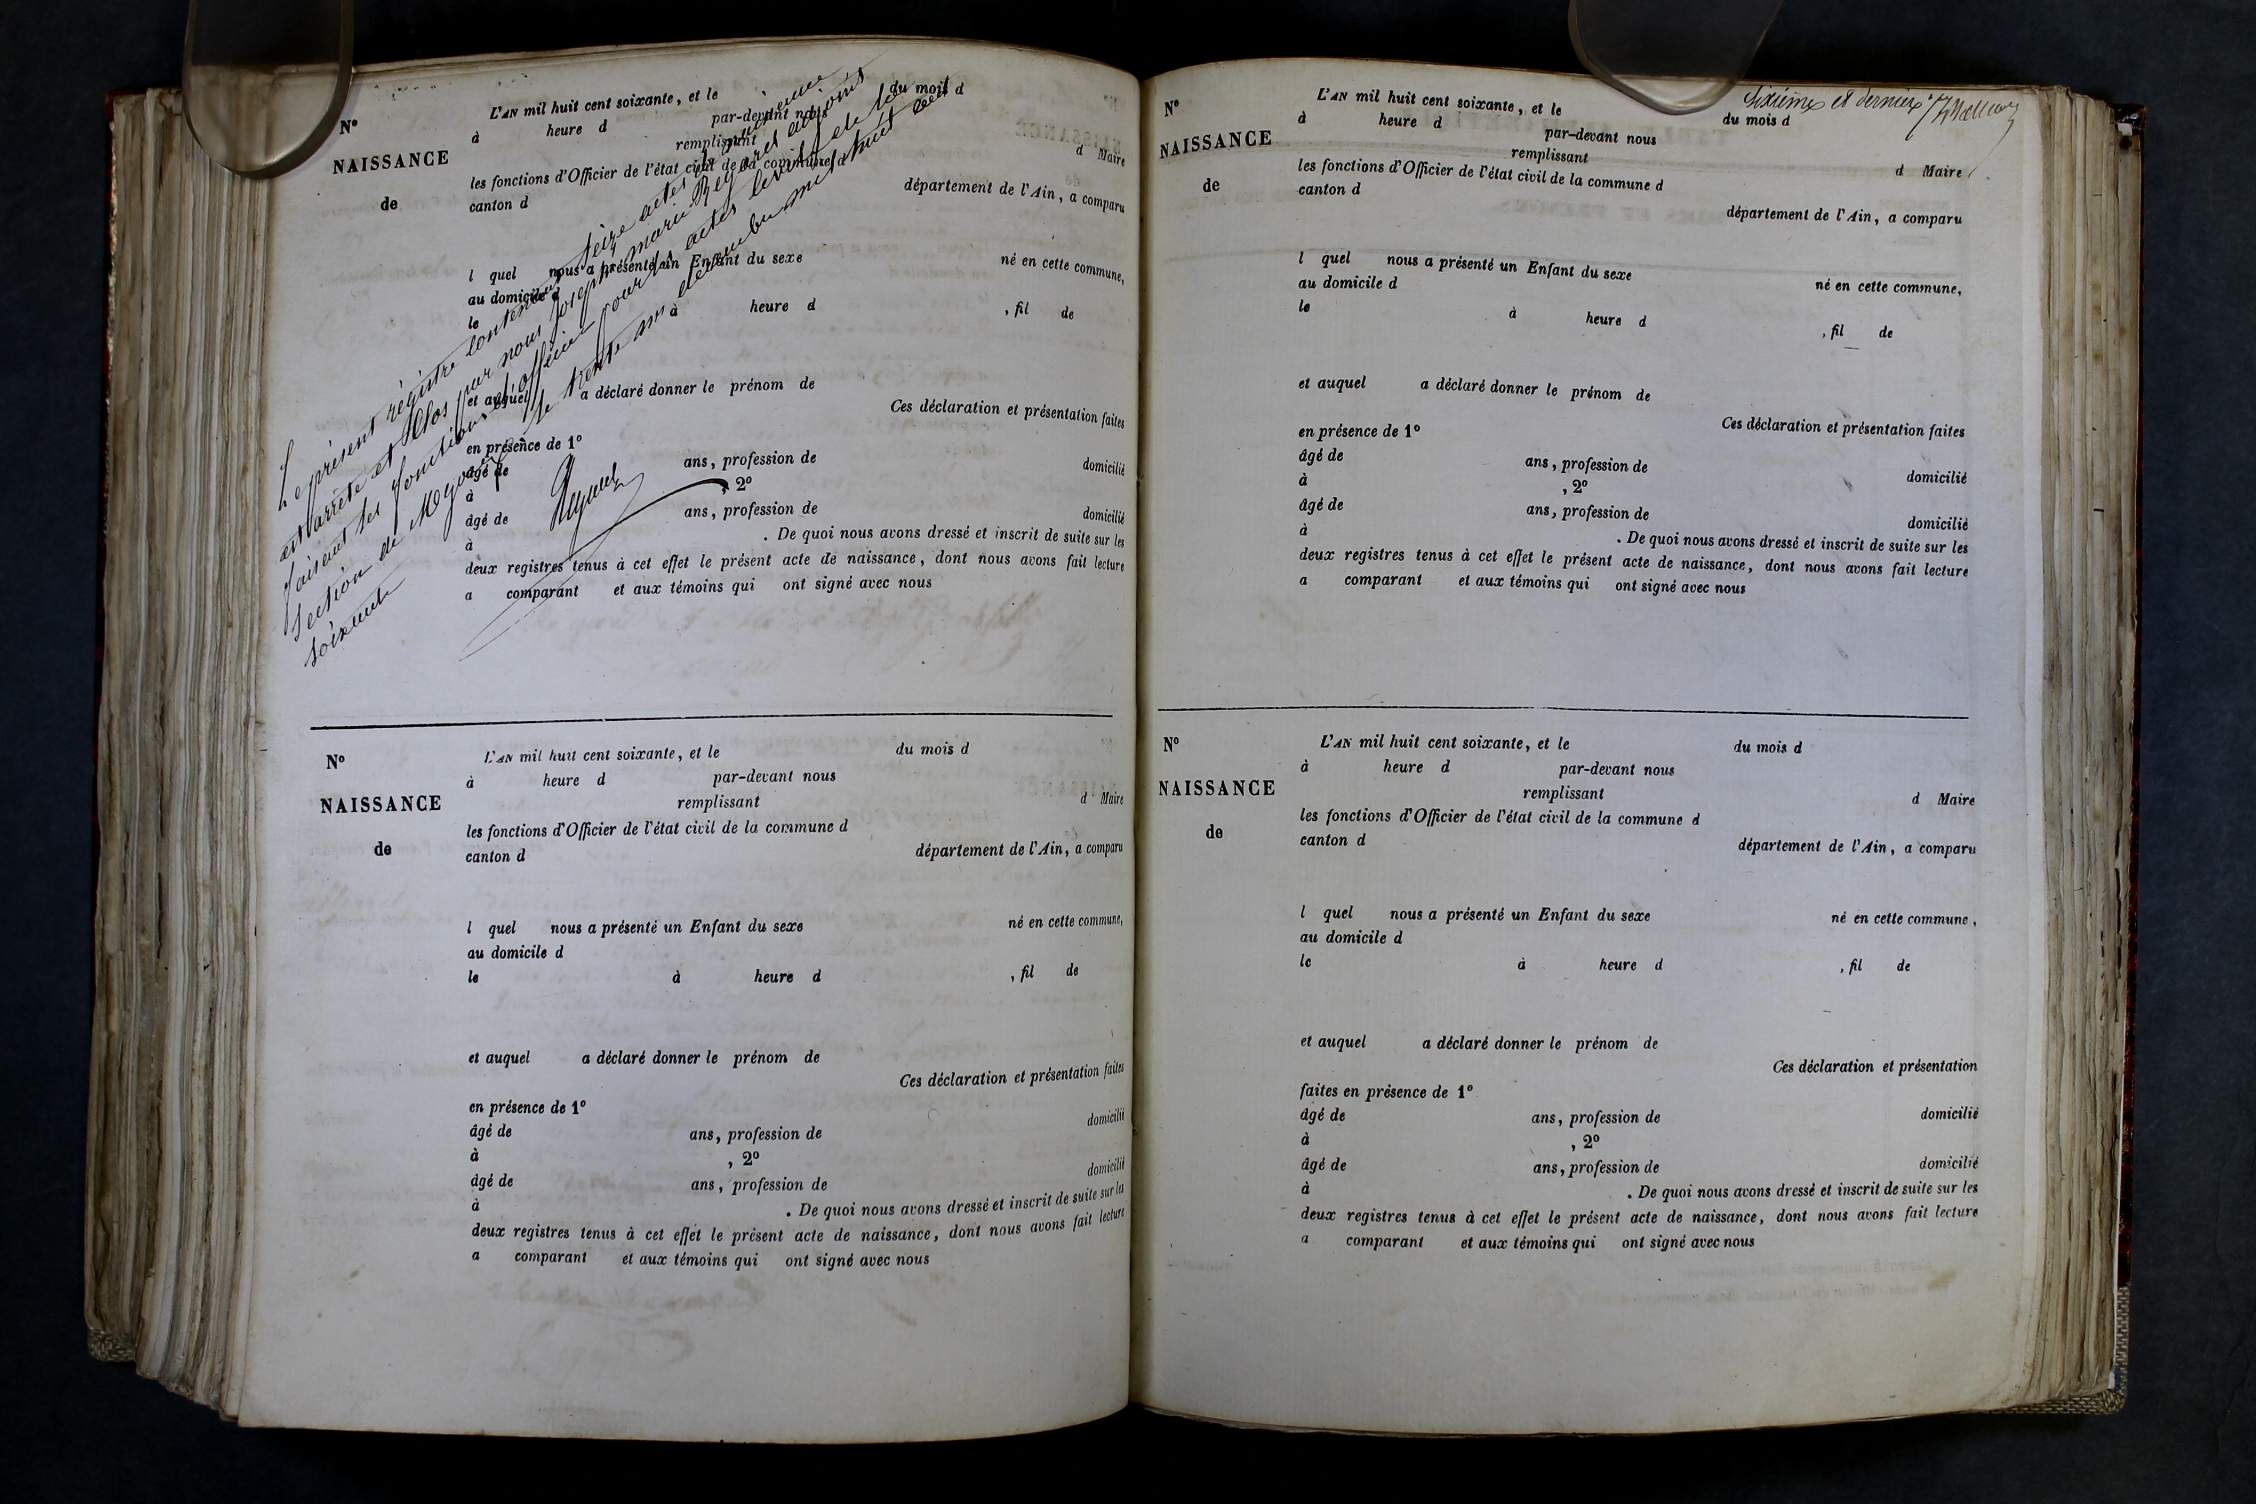 N°
NAISSANCE
de
L'AN mil huit cent soixante, et le du mois d
à heure d par-devant nous
remplissant d Maire
les fonctions d'Officier de l'état civil de la commune d
canton d département de l'Ain, a comparu
l quel nous a présenté un Enfant du sexe né en cette commune,
au domicile d
le à heure d , fil de
et auquel a déclaré donner le prénom de
Ces déclaration et présentation faites
en présence de 1°
âgé de ans, profession de domicilié
à , 2°
âgé de ans, profession de domicilié
à . De quoi nous avons dressé et inscrit de suite sur les
deux registres tenus à cet effet le présent acte de naissance, dont nous avons fait lecture
a comparant et aux témoins qui ont signé avec nous
Le présent régistre contenant seize actes
est arrêté et Clos par nous Joseph marie Reganet adjoint
faisant les fonctions d'officier pour les actes civils de la
Section de le trente un decembre mil huit cent
soixante
N°
NAISSANCE
de
L'AN mil huit cent soixante, et le du mois d
à heure d par-devant nous
remplissant d Maire
les fonctions d'Officier de l'état civil de la commune d
canton d département de l'Ain, a comparu
l quel nous a présenté un Enfant du sexe né en cette commune,
au domicile d
le à heure d , fil de
et auquel a déclaré donner le prénom de
Ces déclaration et présentation faites
en présence de 1°
âgé de ans, profession de domicilié
à , 2°
âgé de ans, profession de domicilié
à . De quoi nous avons dressé et inscrit de suite sur les
deux registres tenus à cet effet le présent acte de naissance, dont nous avons fait lecture
a comparant et aux témoins qui ont signé avec nous
Sixième et dernier
N°
NAISSANCE
de
L'AN mil huit cent soixante, et le du mois d
à heure d par-devant nous
remplissant d Maire
les fonctions d'Officier de l'état civil de la commune d
canton d département de l'Ain, a comparu
l quel nous a présenté un Enfant du sexe né en cette commune,
au domicile d
le à heure d , fil de
et auquel a déclaré donner le prénom de
Ces déclaration et présentation faites
en présence de 1°
âgé de ans, profession de domicilié
à , 2°
âgé de ans, profession de domicilié
à . De quoi nous avons dressé et inscrit de suite sur les
deux registres tenus à cet effet le présent acte de naissance, dont nous avons fait lecture
a comparant et aux témoins qui ont signé avec nous
N°
NAISSANCE
de
L'AN mil huit cent soixante, et le du mois d
à heure d par-devant nous
remplissant d Maire
les fonctions d'Officier de l'état civil de la commune d
canton d département de l'Ain, a comparu
l quel nous a présenté un Enfant du sexe né en cette commune,
au domicile d
le à heure d , fil de
et auquel a déclaré donner le prénom de
Ces déclaration et présentation
faites en présence de 1°
âgé de ans, profession de domicilié
à , 2°
âgé de ans, profession de domicilié
à . De quoi nous avons dressé et inscrit de suite sur les
deux registres tenus à cet effet le présent acte de naissance, dont nous avons fait lecture
a comparant et aux témoins qui ont signé avec nous